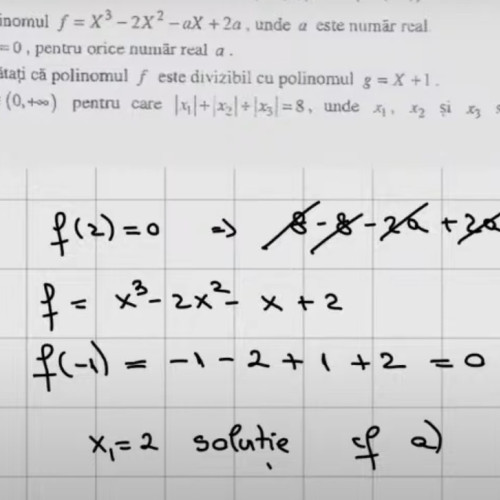 inomul f = X³ − 2X² − aX + 2a, unde a este număr real
= 0, pentru orice număr real a.
ătați că polinomul f este divizibil cu polinomul g = X + 1.
(0,+∞) pentru care |x₁|+|x₂|+|x₃|=8, unde x₁, x₂ și x₃ s
f(2) = 0 ⇒ 8 - 8 - 2a + 2a
f = x³ - 2x² - x + 2
f(-1) = -1 - 2 + 1 + 2 = 0
x₁ = 2 soluție cf a)